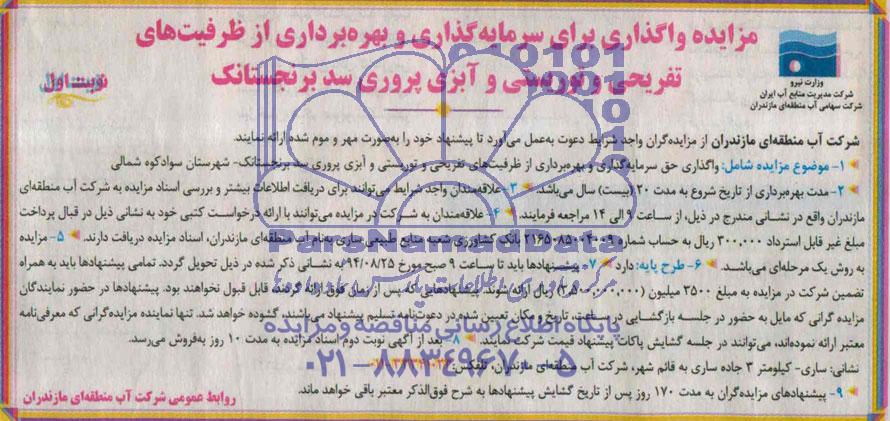 مزایده واگذاری برای سرمایه‌گذاری و بهره‌برداری از ظرفیت‌های
تفریحی و توریستی و آبزی پروری سد برنجستانک
نوبت اول
وزارت نیرو
شرکت مدیریت منابع آب ایران
شرکت سهامی آب منطقه‌ای مازندران
شرکت آب منطقه‌ای مازندران از مزایده‌گران واجد شرایط دعوت به‌عمل می‌آورد تا پیشنهاد خود را به‌صورت مهر و موم شده ارائه نمایند.
۱- موضوع مزایده شامل: واگذاری حق سرمایه‌گذاری و بهره‌برداری از ظرفیت‌های تفریحی و توریستی و آبزی پروری سد برنجستانک- شهرستان سوادکوه شمالی
۲- مدت بهره‌برداری از تاریخ شروع به مدت ۲۰ (بیست) سال می‌باشد. ۳- علاقه‌مندان واجد شرایط می‌توانند برای دریافت اطلاعات بیشتر و بررسی اسناد مزایده به شرکت آب منطقه‌ای
مازندران واقع در نشانی مندرج در ذیل، از ساعت ۹ الی ۱۴ مراجعه فرمایند. ۴- علاقه‌مندان به شرکت در مزایده می‌توانند با ارائه درخواست کتبی خود به نشانی ذیل در قبال پرداخت
مبلغ غیر قابل استرداد ۳۰۰,۰۰۰ ریال به حساب شماره ۲۱۶۵۰۸۵۰۰۴۰۰۹ بانک کشاورزی شعبه منابع طبیعی ساری به‌نام آب منطقه‌ای مازندران، اسناد مزایده دریافت دارند. ۵- مزایده
به روش یک مرحله‌ای می‌باشد. ۶- طرح پایه: دارد ۷- پیشنهادها باید تا ساعت ۹ صبح مورخ ۹۴/۰۸/۲۵ به نشانی ذکر شده در ذیل تحویل گردد. تمامی پیشنهادها باید به همراه
تضمین شرکت در مزایده به مبلغ ۳۵۰۰ میلیون (۳,۵۰۰,۰۰۰,۰۰۰) ریال ارائه شوند. پیشنهادهایی که پس از زمان فوق ارائه گردند، قابل قبول نخواهند بود. پیشنهادها در حضور نمایندگان
مزایده گرانی که مایل به حضور در جلسه بازگشایی در ساعت، تاریخ و مکان تعیین شده در دعوت‌نامه تسلیم پیشنهاد می‌باشند، گشوده خواهد شد. تنها نماینده مزایده‌گرانی که معرفی‌نامه
معتبر ارائه نموده‌اند، می‌توانند در جلسه گشایش پاکات پیشنهاد قیمت شرکت نمایند. ۸- بعد از آگهی نوبت دوم اسناد مزایده به مدت ۱۰ روز به‌فروش می‌رسد.
نشانی: ساری- کیلومتر ۳ جاده ساری به قائم شهر، شرکت آب منطقه‌ای مازندران، تلفکس:
۹- پیشنهادهای مزایده‌گران به مدت ۱۷۰ روز پس از تاریخ گشایش پیشنهادها به شرح فوق‌الذکر معتبر باقی خواهد ماند.
روابط عمومی شرکت آب منطقه‌ای مازندران
پایگاه اطلاع رسانی مناقصه و مزایده
۰۲۱-۸۸۳۴۹۶۷۰-۵